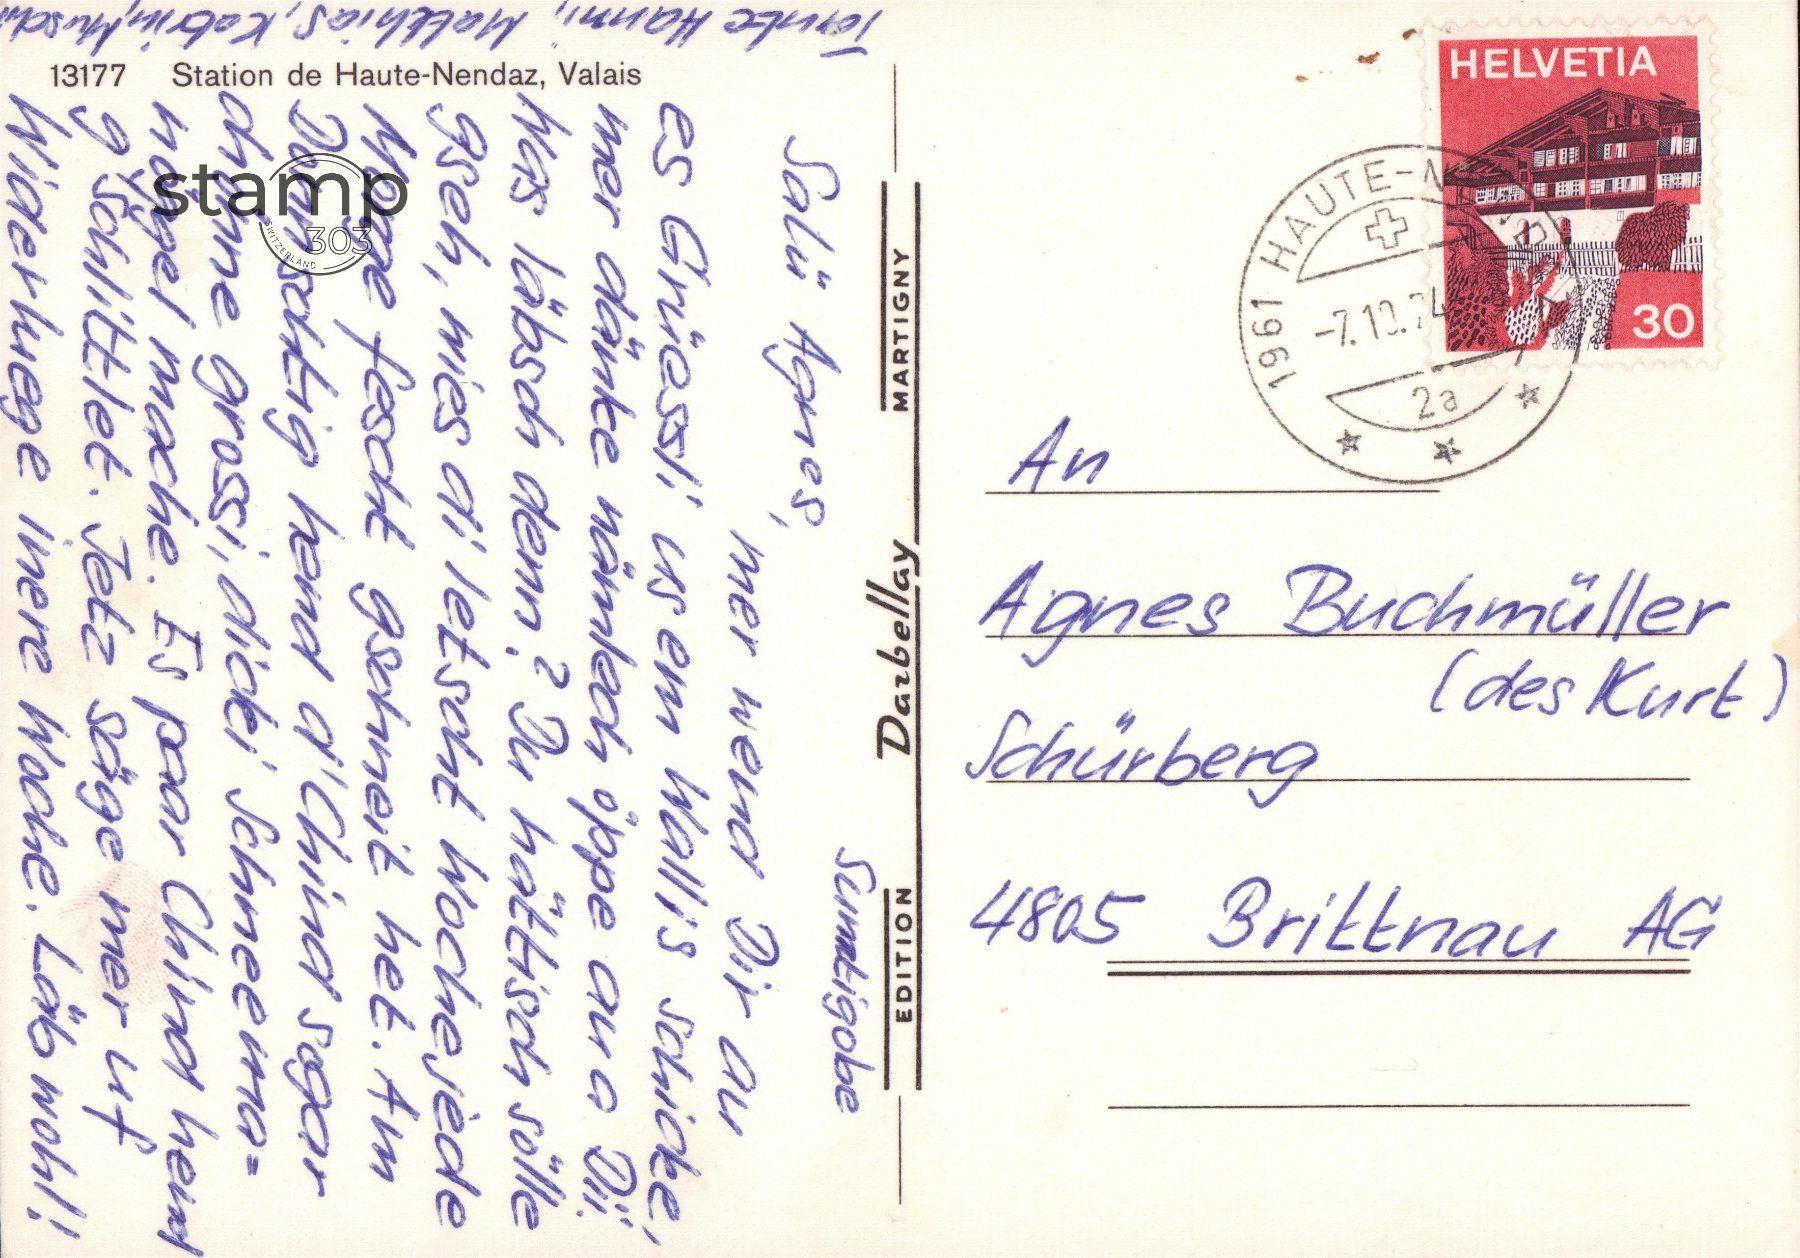 13177 Station de Haute-Nendaz, Valais
Sunntigobe
Salü Agnes,
mer wend Dir au
es Grüessli us em Wallis schicke,
mer dänke nämlech öppe au a Dii.
Was läbsch denn? Du hättisch sölle
gseh, wies di letscht Woche jede
Morge fescht gschneit het. Am
Donnschtig hend d'Chind sogar
chönne grossi, dicki Schneema=
nöggel mache. Es paar Chind hend
gschlittlet. Jetz säge mer uf
Widerluege inere Woche. Läb wohl!
Tante Hanni, Matthias, Katrin,
EDITION Darbellay MARTIGNY
HELVETIA
30
1961 HAUTE-N
-7.10.74
2a
An
Agnes Buchmüller
(des Kurt)
Schürberg
4805 Brittnau AG
stamp
303
SWITZERLAND